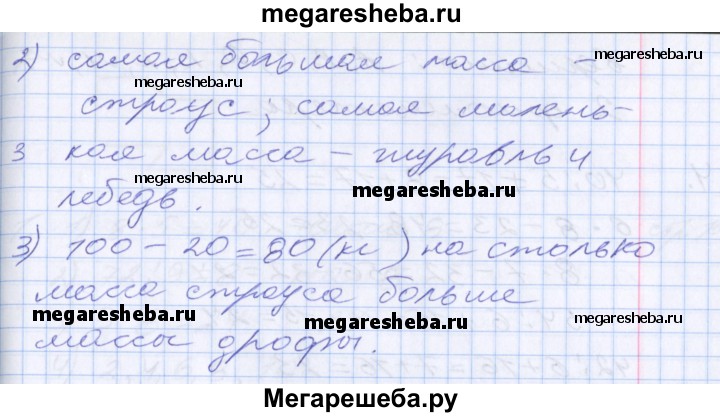 megaresheba.ru
2) самая большая масса –
megaresheba.ru
megaresheba.ru
страус; самая малень-
3 кая масса – журавль и
megaresheba.ru
megaresheba.ru
лебедь.
3) 100 – 20 = 80 (кг) на столько
масса страуса больше
megaresheba.ru
megaresheba.ru
megaresheba.ru
массы дрофы.
Мегарешеба.ру